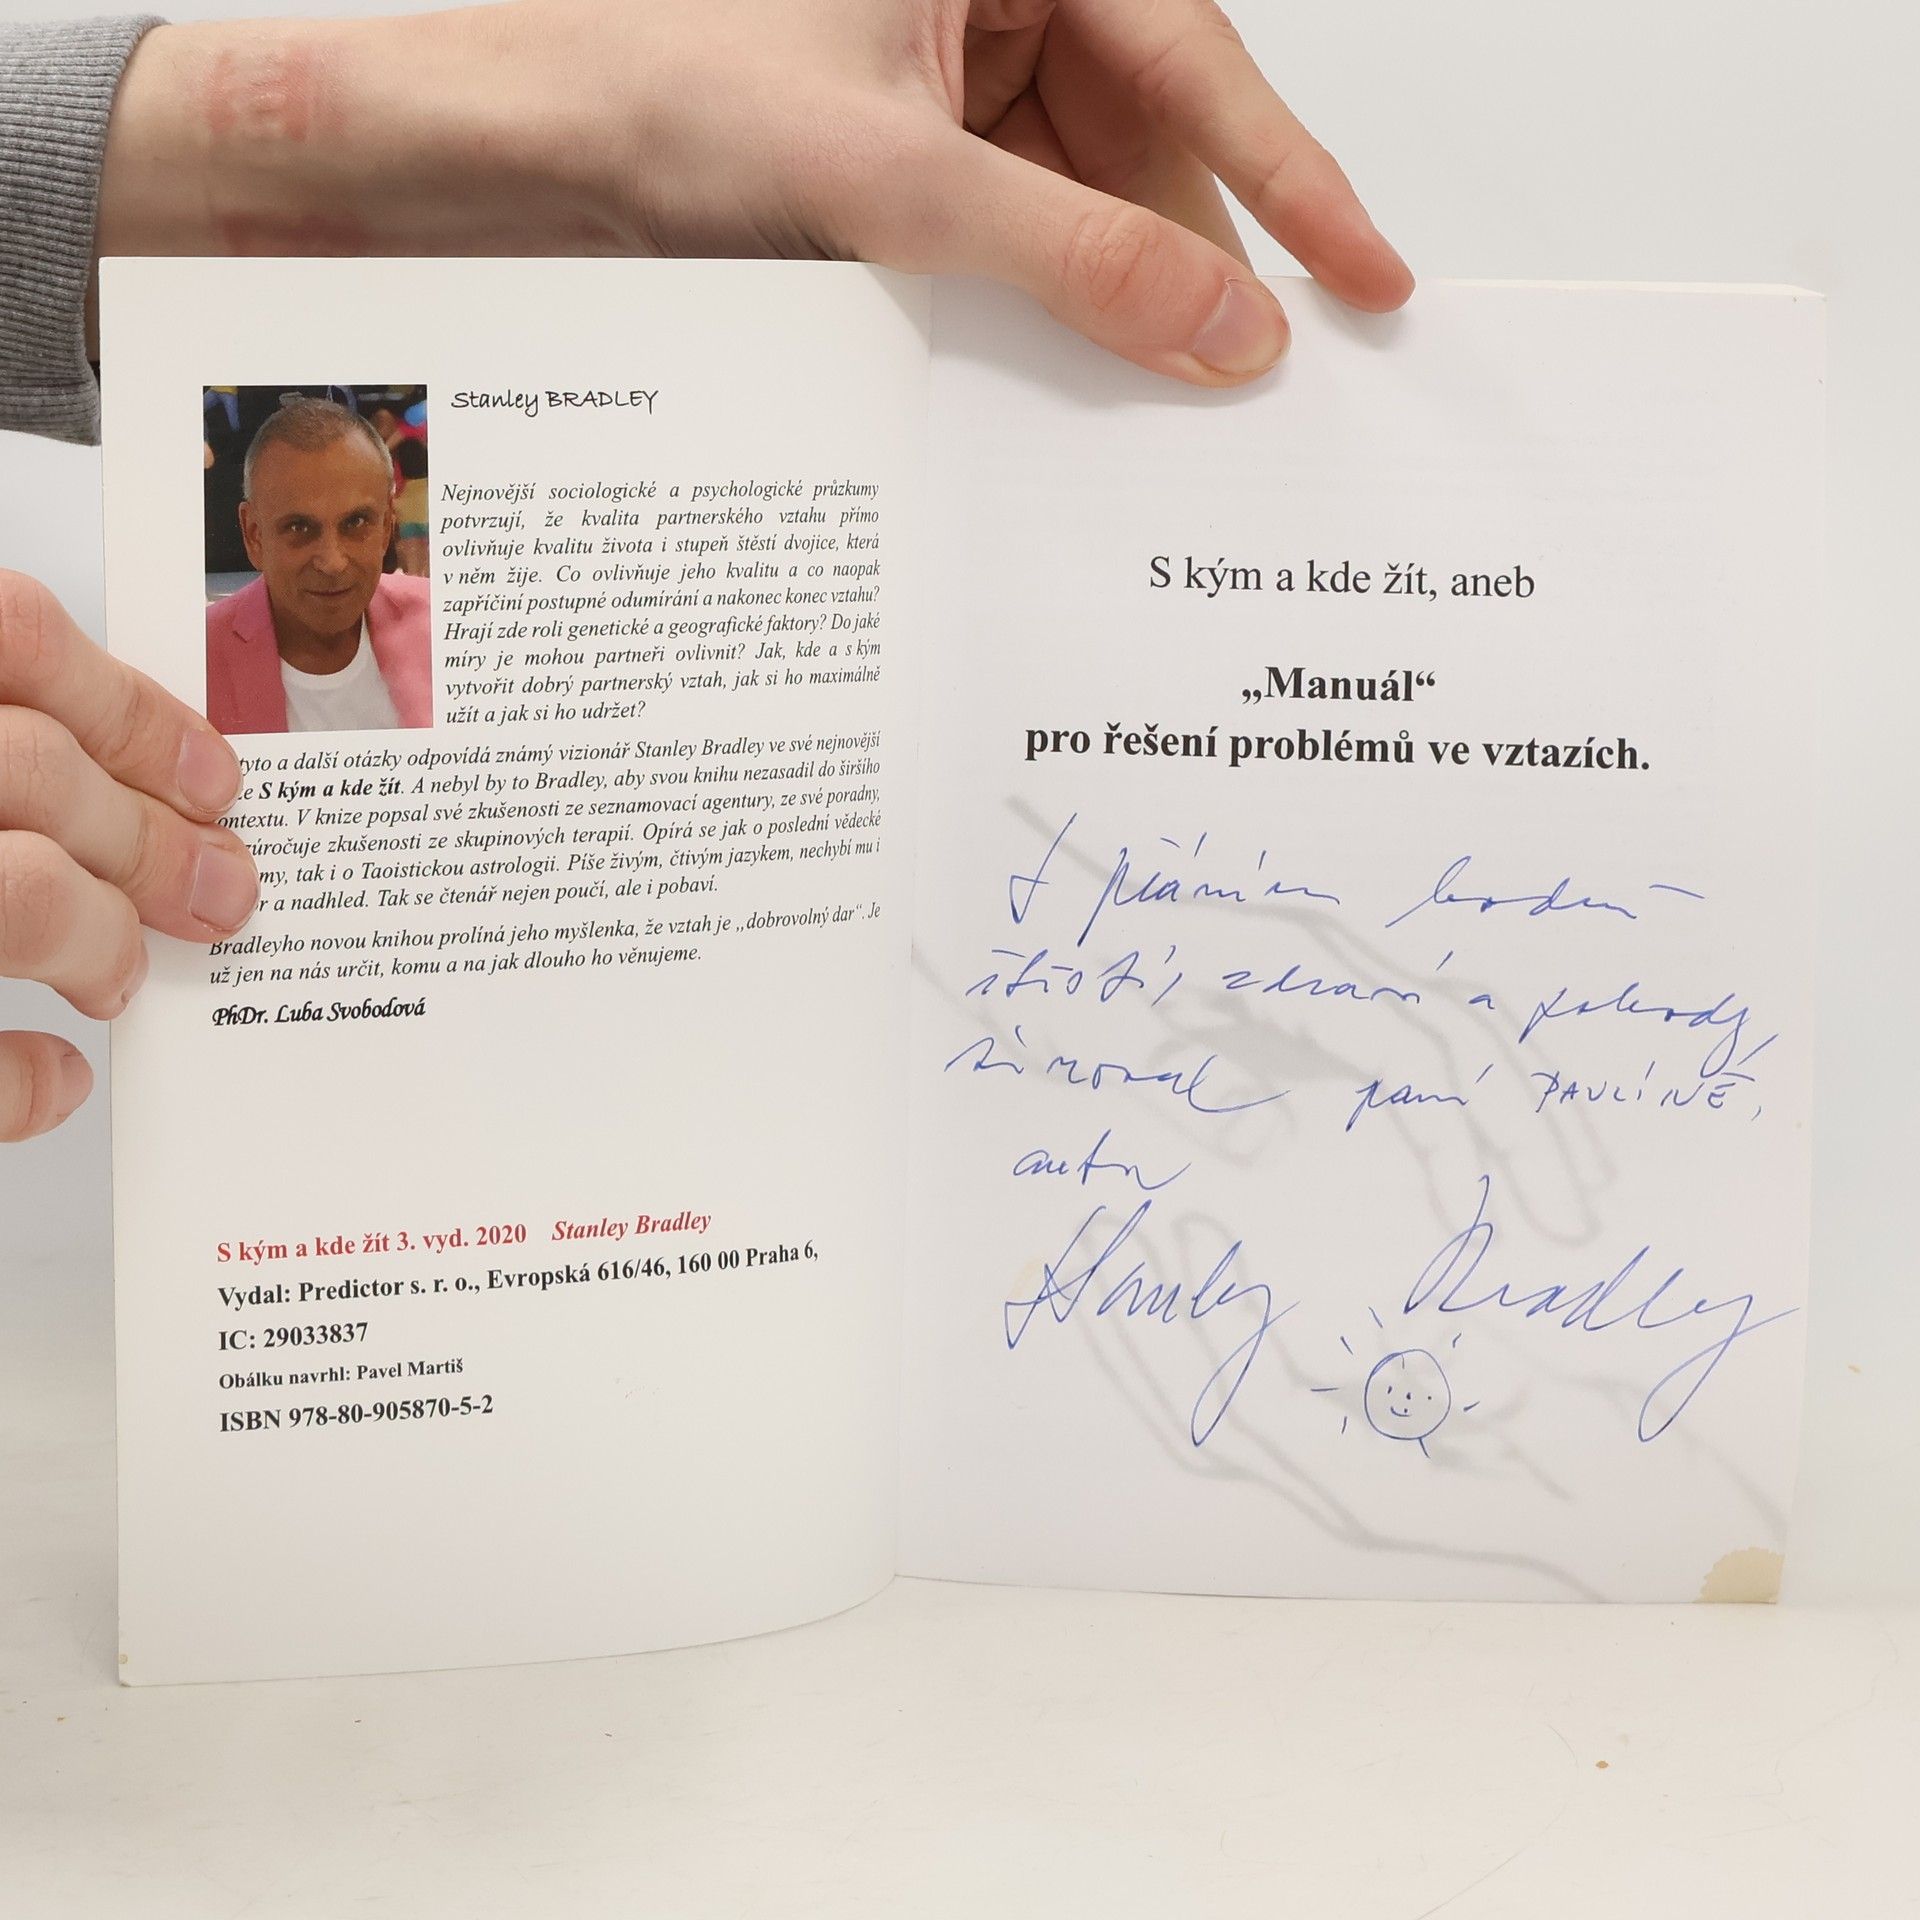 Stanley BRADLEY
Nejnovější sociologické a psychologické průzkumy
potvrzují, že kvalita partnerského vztahu přímo
ovlivňuje kvalitu života i stupeň štěstí dvojice, která
v něm žije. Co ovlivňuje jeho kvalitu a co naopak
zapříčiní postupné odumírání a nakonec konec vztahu?
Hrají zde roli genetické a geografické faktory? Do jaké
míry je mohou partneři ovlivnit? Jak, kde a s kým
vytvořit dobrý partnerský vztah, jak si ho maximálně
užít a jak si ho udržet?
tyto a další otázky odpovídá známý vizionář Stanley Bradley ve své nejnovější
S kým a kde žít. A nebyl by to Bradley, aby svou knihu nezasadil do širšího
ontextu. V knize popsal své zkušenosti ze seznamovací agentury, ze své poradny,
zúročuje zkušenosti ze skupinových terapií. Opírá se jak o poslední vědecké
my, tak i o Taoistickou astrologii. Píše živým, čtivým jazykem, nechybí mu i
r a nadhled. Tak se čtenář nejen poučí, ale i pobaví.
Bradleyho novou knihou prolíná jeho myšlenka, že vztah je „dobrovolný dar“. Je
už jen na nás určit, komu a na jak dlouho ho věnujeme.
PhDr. Luba Svobodová
S kým a kde žít 3. vyd. 2020 Stanley Bradley
Vydal: Predictor s. r. o., Evropská 616/46, 160 00 Praha 6,
IC: 29033837
Obálku navrhl: Pavel Martiš
ISBN 978-80-905870-5-2
S kým a kde žít, aneb
„Manuál“
pro řešení problémů ve vztazích.
S přáním hodně
štěstí, zdraví a pohody
věnoval paní PAVLÍNĚ,
autor
Stanley Bradley